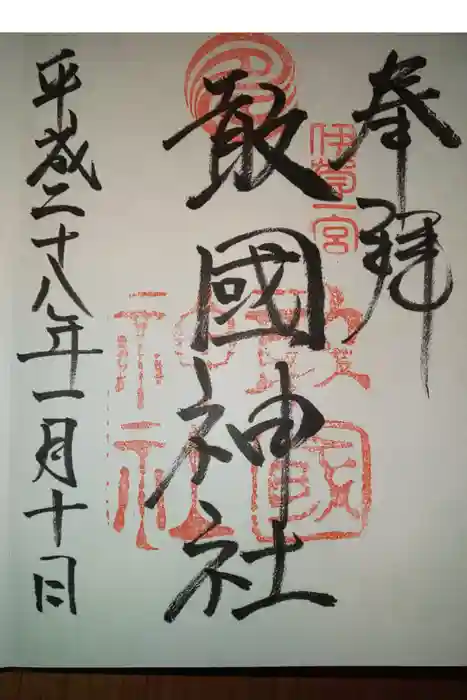 奉拝
伊賀一宮
敢國神社
敢國
神社
平成二十八年一月十日